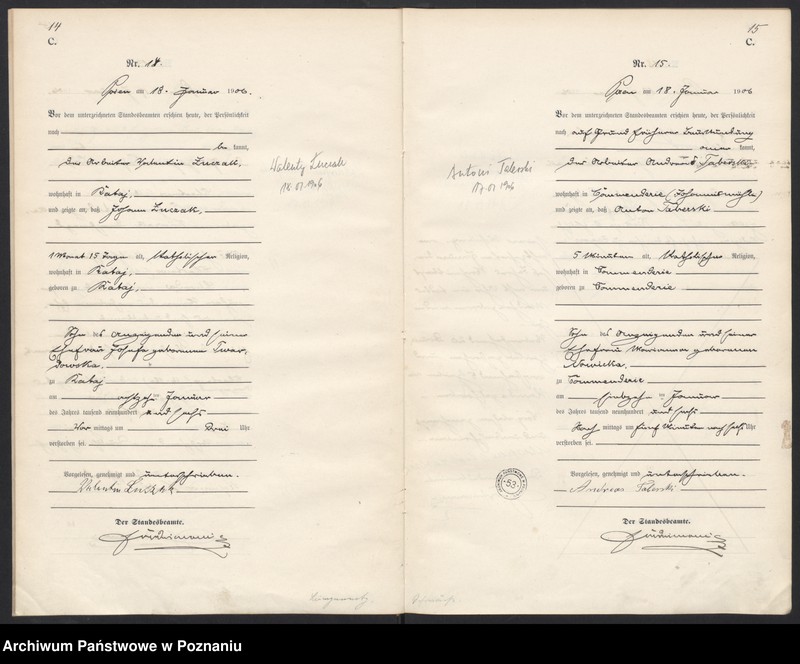 14
C.
Nr. 14.
Posen am 18. Januar 1906.
Vor dem unterzeichneten Standesbeamten erschien heute, der Persönlichkeit
nach
be kannt,
der Arbeiter Valentin Luczak,
wohnhaft in Rataj,
und zeigte an, daß Johann Luczak,
1 Monat 15 Tage alt, katholischer Religion,
wohnhaft in Rataj,
geboren zu Rataj,
Sohn des Anzeigenden und seiner
Ehefrau Josefa geborenen Twar,
dowska,
zu Rataj
am achtzehn Januar
des Jahres tausend neunhundert und sechs
Vor mittags um drei Uhr
verstorben sei.
Vorgelesen, genehmigt und unterschrieben.
Valentin Luczak
Der Standesbeamte.
Walenty Łuczak
18.01.1906
15
C.
Nr. 15.
Posen am 18. Januar 1906
Vor dem unterzeichneten Standesbeamten erschien heute, der Persönlichkeit
nach auf Grund früherer Beurkundung
kannt,
der Arbeiter Andreas Taberski
wohnhaft in Commenderie (Johannismühle)
und zeigte an, daß Anton Taberski
5 Minuten alt, katholischer Religion,
wohnhaft in Commenderie
geboren zu Commenderie
Sohn des Anzeigenden und seiner
Ehefrau Marianna geborenen
Nowicka,
zu Commenderie
am siebzehn Januar
des Jahres tausend neunhundert und sechs
Nach mittags um fünf Minuten nach sechs Uhr
verstorben sei.
Vorgelesen, genehmigt und unterschrieben.
Andreas Taberski
Der Standesbeamte.
Antoni Taberski
17.01.1906
53
Archiwum Państwowe w Poznaniu